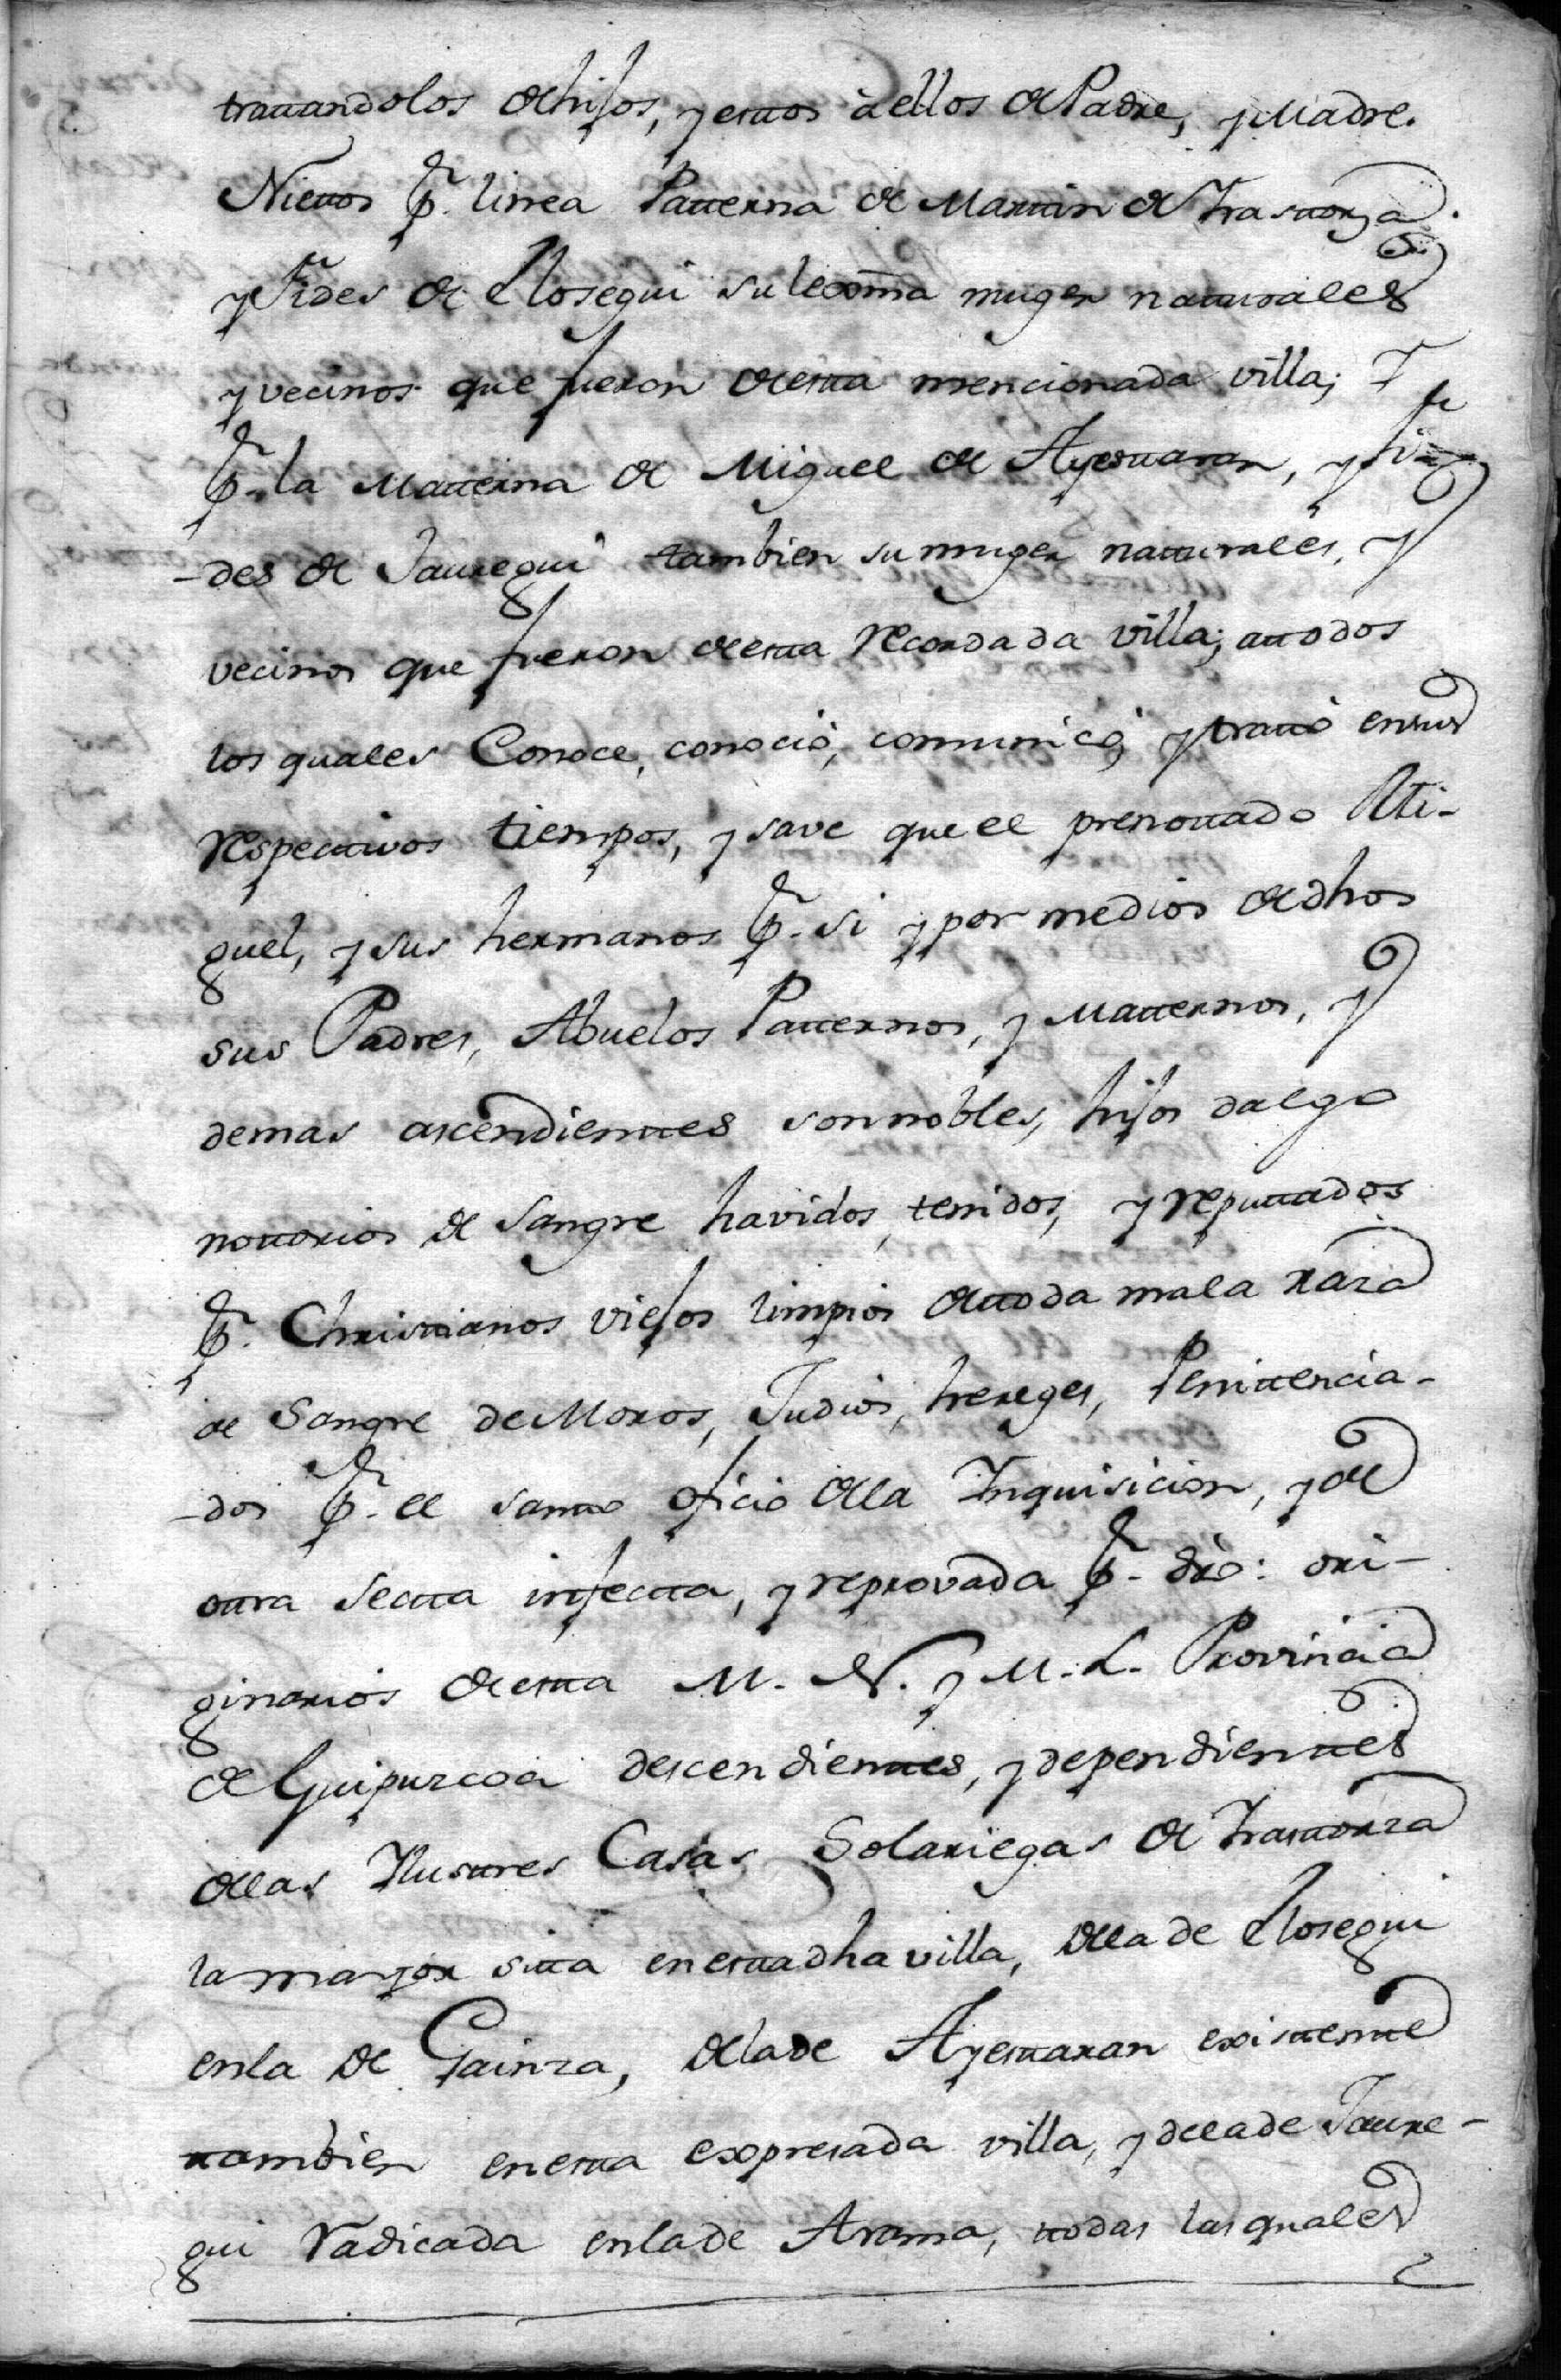 trattandolos de hijos, y estos à ellos de Padre, y Madre.
Niettos p.r linea Patterna de Marttin de Yrastorza
y Fides de Elosegui su lexma muger natturales
y vecinos que fueron de estta mencionada villa; Y
p.r la Matterna de Miguel de Ayesttaran, y Fi-
-des de Jauregui tambien su muger natturales, y
vecinos que fueron de estta recordada villa; a ttodos
los quales Conoce, conociò, comunicò, y trattò en sus
respecttivos tiempos, y save que el prenottado Mi-
guel, y sus hermanos p.r si y por medios de dhos
sus Padres, Abuelos Patternos, y Matternos, y
demas ascendienttes son nobles, hijos dalgo
nottorios de Sangre havidos, tenidos, y reputtados
p.r Christtianos viejos limpios de ttoda mala raza
de Sangre de Moros, Judios, hereges, Penittencia-
-dos p.r el santto oficio de la Inquisicion, y de
ottra sectta infectta, y reprovada p.r dro: ori-
ginarios de estta M. N. y M. L. Provincia
de Guipuzcoa descendienttes, y dependienttes
de las Ylusttres Casas Solariegas de Yrasttorza
la mayor sitta en estta dha villa, de la de Elosegui
en la de Gainza, de la de Ayesttaran existtentte
ttambien en estta expresada villa, y de la de Jaure-
gui radicada en la de Arama, ttodas las quales